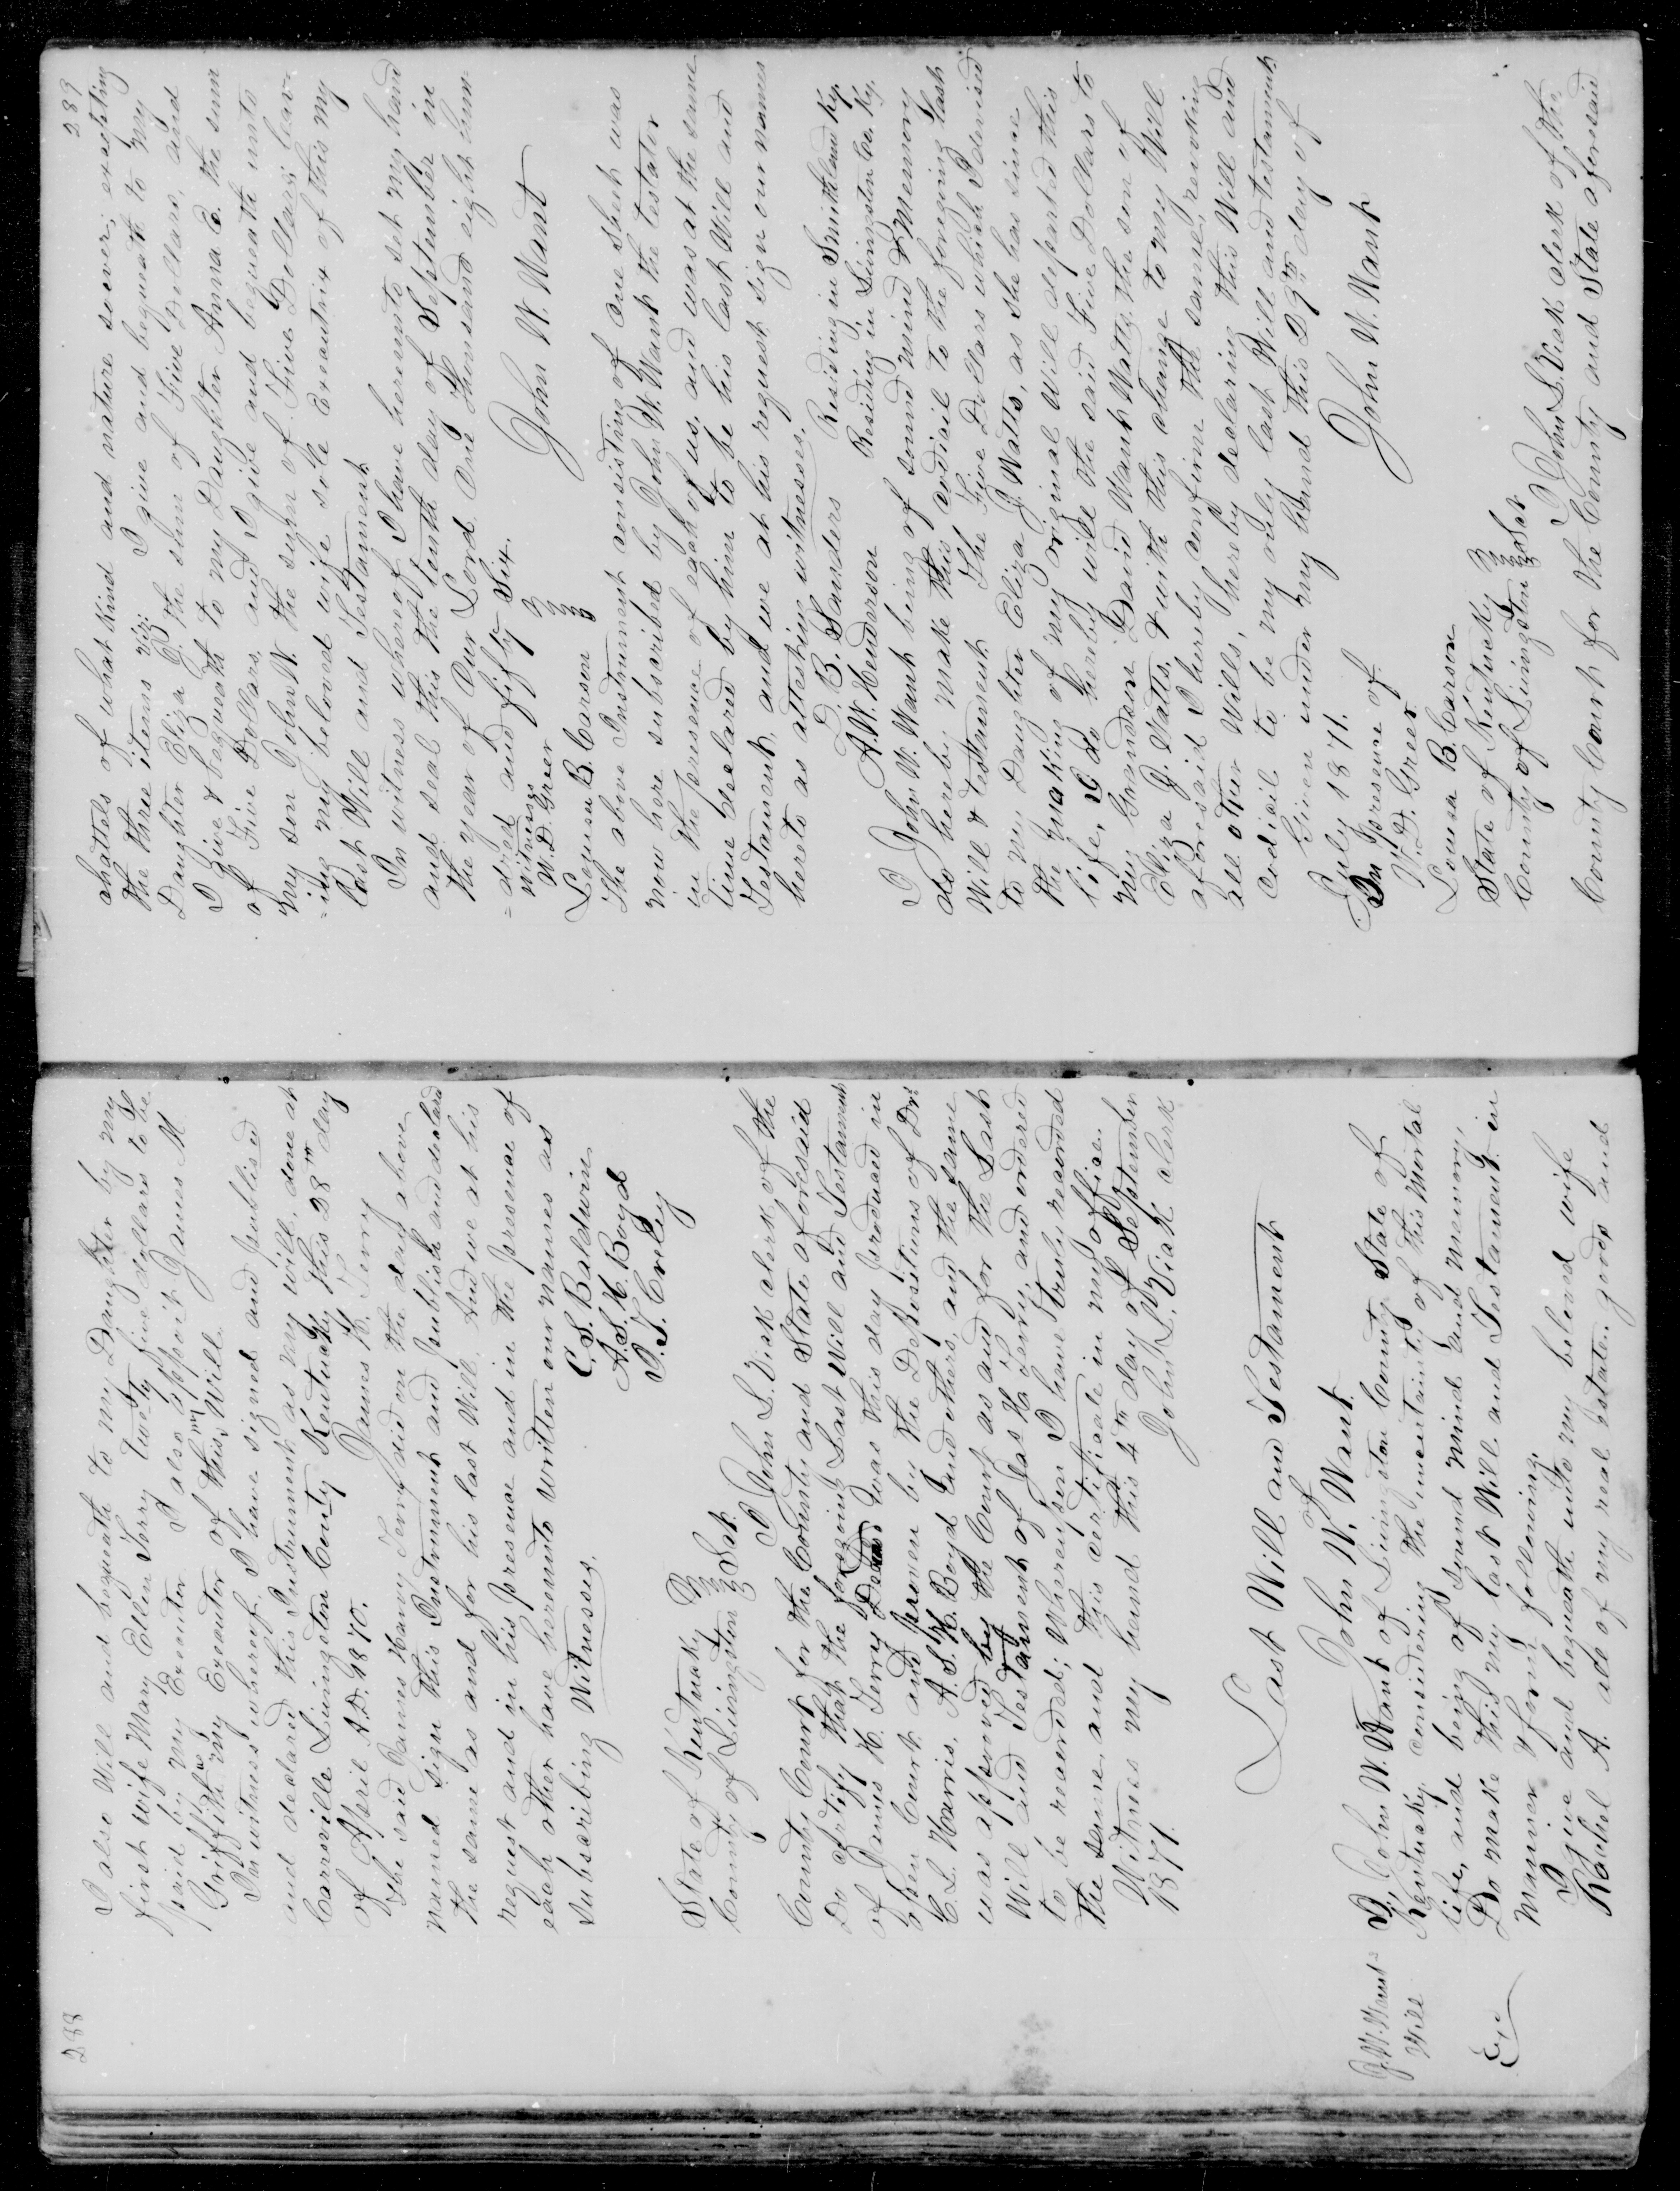 288
I also Will and bequeath to my Daughter by my
first wife Mary Ellen Terry twenty five dollars to be
paid by my Executor. I also appoint James M
Griffith my Executor of this my Will.
In witness whereof I have signed and publised
and declared this Instrument as my will, done at
Carrsville Livingston County Kentucky this 28th day
of April A.D. 1870. James H. Terry
The said James Henry Terry did on the day above
named sign this Instrument and publish and declard
the same as and for his last Will. And we at his
request and in his presence and in the presence of
each other have hereunto written our names as
subscribing Witnesses.
C. S. Baldwin
A. S. K. Boyd
P. T. Crely
State of Kentucky
County of Livingston Sct.
I John L. Vick clerk of the
County Court for the County and State aforesaid
Do Certify that the foregoing Last Will and Testament
of James H. Terry was this day produced in
open Court and proven by the Depositions of Drs
C. L. Harris, A. S. K. Boyd and others, and the same
was approved by the Court as and for the Last
Will and Testament of Jas H. Terry, and ordered
to be recorded; Whereupon I have truly recorded
the same and this certificate in my office.
Witness my hand this 4th day of September
1871. John L. Vick Clerk
Last Will and Testament
of
John W. Want.
J. W. Want's
Will
I, John W. Want of Livingston County State of
Kentucky, considering the uncertainty of this Mortal
life, and being of sound mind and memory,
Do make this my last Will and Testament, in
manner & form following.
I give and bequeath unto my beloved wife
Rachel A. all of my real estate, goods and
289
chattels of what kind and nature soever; excepting
the three items viz: I give and bequeath to my
Daughter Eliza J. the sum of Five dollars, and
I Give & bequeath to my Daughter Anna E. the sum
of Five Dollars, and I give and bequeath unto
my son John W. the sum of Five Dollars; leav
=ing my beloved wife sole Executrix of this my
last Will and Testament
In witness whereof I have hereunto set my hand
and seal this the tenth day of September in
the year of Our Lord One Thousand eight hun
=dred and fifty Six.
Witness
W. D. Greer
Louisa B. Carson
John W. Want
The above Instrument consisting of one sheet was
now here subscribed by John W. Want the testator
in the presence of each of us, and was at the same
time declared by him to be his last Will and
Testament, and we at his request sign our names
hereto as attesting witnesses.
D. B. Sanders Residing in Smithland Ky.
A. W. Henderson Residing in Livingston Co. Ky.
I John W. Want being of sound mind & Memory
do hereby make this codicil to the foregoing last
Will & testament The Five Dollars which I devised
to my Daughter Eliza J. Watts, as she has since
the making of my original Will departed this
life, I do hereby will the said Five Dollars to
my Grandson David Want Watts, the son of
Eliza J. Watts, & with this change to my Will
aforesaid I hereby confirm the same, revoking
all other Wills, hereby declaring this Will and
Codicil to be my only last Will and testament
Given under my hand this 29th day of
July 1871.
In Presence of John W. Want
W. D. Greer
Louisa B. Carson
State of Kentucky
County of Livingston Sct
I John L. Vick clerk of the
County Court for the County and State aforesaid